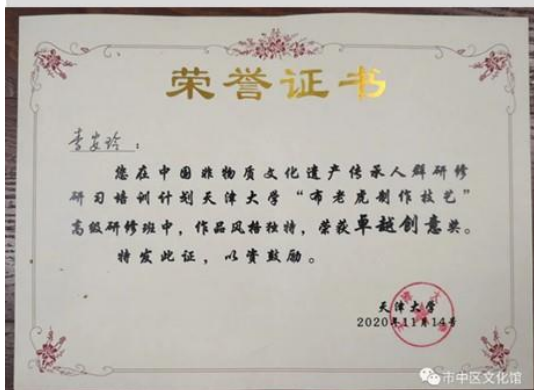 荣誉证书
李安玲：
您在中国非物质文化遗产传承人群研修
研习培训计划天津大学“布老虎制作技艺”
高级研修班中，作品风格独特，荣获卓越创意奖。
特发此证，以资鼓励。
天津大学
2020年11月14号
市中区文化馆